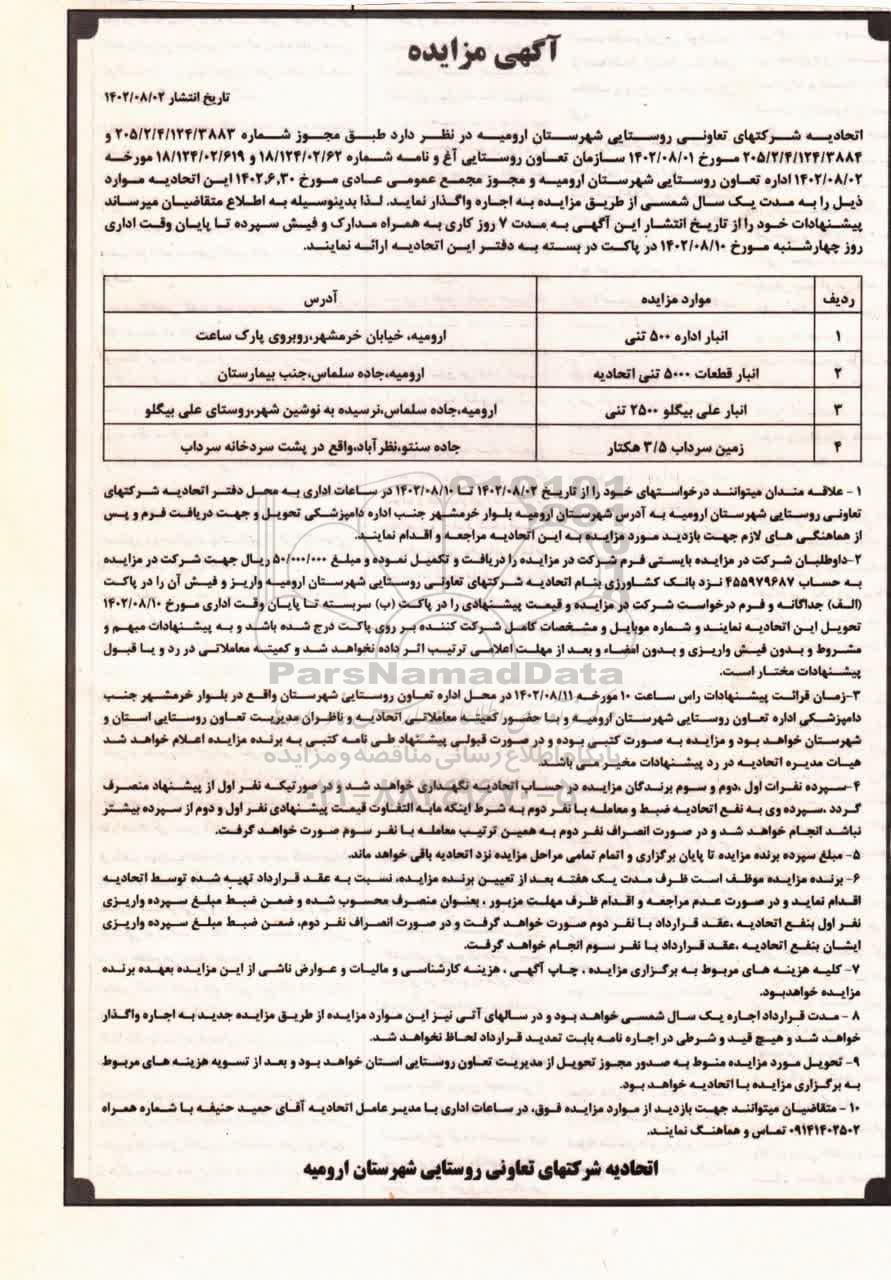 آگهی مزایده
تاریخ انتشار ۱۴۰۲/۰۸/۰۲
اتحادیه شرکتهای تعاونی روستایی شهرستان ارومیه در نظر دارد طبق مجوز شماره ۲۰۵/۲/۴/۱۲۴/۳۸۸۳ و
۲۰۵/۲/۴/۱۲۴/۳۸۸۴ مورخ ۱۴۰۲/۰۸/۰۱ سازمان تعاون روستایی آغ و نامه شماره ۱۸/۱۲۴/۰۲/۶۲ و ۱۸/۱۲۴/۰۲/۶۱۹ مورخه
۱۴۰۲/۰۸/۰۲ اداره تعاون روستایی شهرستان ارومیه و مجوز مجمع عمومی عادی مورخ ۱۴۰۲,۶,۳۰ این اتحادیه موارد
ذیل را به مدت یک سال شمسی از طریق مزایده به اجاره واگذار نماید. لذا بدینوسیله به اطلاع متقاضیان میرساند
پیشنهادات خود را از تاریخ انتشار این آگهی به مدت ۷ روز کاری به همراه مدارک و فیش سپرده تا پایان وقت اداری
روز چهارشنبه مورخ ۱۴۰۲/۰۸/۱۰ در پاکت در بسته به دفتر این اتحادیه ارائه نمایند.
ردیف موارد مزایده آدرس
۱ انبار اداره ۵۰۰ تنی ارومیه، خیابان خرمشهر،روبروی پارک ساعت
۲ انبار قطعات ۵۰۰۰ تنی اتحادیه ارومیه،جاده سلماس،جنب بیمارستان
۳ انبار علی بیگلو ۲۵۰۰ تنی ارومیه،جاده سلماس،نرسیده به نوشین شهر،روستای علی بیگلو
۴ زمین سرداب ۳/۵ هکتار جاده سنتو،نظرآباد،واقع در پشت سردخانه سرداب
۱ - علاقه مندان میتوانند درخواستهای خود را از تاریخ ۱۴۰۲/۰۸/۰۲ تا ۱۴۰۲/۰۸/۱۰ در ساعات اداری به محل دفتر اتحادیه شرکتهای
تعاونی روستایی شهرستان ارومیه به آدرس شهرستان ارومیه بلوار خرمشهر جنب اداره دامپزشکی تحویل و جهت دریافت فرم و پس
از هماهنگی های لازم جهت بازدید مورد مزایده به این اتحادیه مراجعه و اقدام نمایند.
۲-داوطلبان شرکت در مزایده بایستی فرم شرکت در مزایده را دریافت و تکمیل نموده و مبلغ ۵۰/۰۰۰/۰۰۰ ریال جهت شرکت در مزایده
به حساب ۴۵۵۹۷۹۶۸۷ نزد بانک کشاورزی بنام اتحادیه شرکتهای تعاونی روستایی شهرستان ارومیه واریز و فیش آن را در پاکت
(الف) جداگانه و فرم درخواست شرکت در مزایده و قیمت پیشنهادی را در پاکت (ب) سربسته تا پایان وقت اداری مورخ ۱۴۰۲/۰۸/۱۰
تحویل این اتحادیه نمایند و شماره موبایل و مشخصات کامل شرکت کننده بر روی پاکت درج شده باشد و به پیشنهادات مبهم و
مشروط و بدون فیش واریزی و بدون امضاء و بعد از مهلت اعلامی ترتیب اثر داده نخواهد شد و کمیته معاملاتی در رد و یا قبول
پیشنهادات مختار است.
ParsNamadData
۳-زمان قرائت پیشنهادات راس ساعت ۱۰ مورخه ۱۴۰۲/۰۸/۱۱ در محل اداره تعاون روستایی شهرستان واقع در بلوار خرمشهر جنب
دامپزشکی اداره تعاون روستایی شهرستان ارومیه و با حضور کمیته معاملاتی اتحادیه و ناظران مدیریت تعاون روستایی استان و
شهرستان خواهد بود و مزایده به صورت کتبی بوده و در صورت قبولی پیشنهاد طی نامه کتبی به برنده مزایده اعلام خواهد شد
هیات مدیره اتحادیه در رد پیشنهادات مخیر می باشد.
پایگاه اطلاع رسانی مناقصه و مزایده
۴-سپرده نفرات اول ،دوم و سوم برندگان مزایده در حساب اتحادیه نگهداری خواهد شد و در صورتیکه نفر اول از پیشنهاد منصرف
گردد ،سپرده وی به نفع اتحادیه ضبط و معامله با نفر دوم به شرط اینکه مابه التفاوت قیمت پیشنهادی نفر اول و دوم از سپرده بیشتر
نباشد انجام خواهد شد و در صورت انصراف نفر دوم به همین ترتیب معامله با نفر سوم صورت خواهد گرفت.
۵- مبلغ سپرده برنده مزایده تا پایان برگزاری و اتمام تمامی مراحل مزایده نزد اتحادیه باقی خواهد ماند.
۶- برنده مزایده موظف است ظرف مدت یک هفته بعد از تعیین برنده مزایده، نسبت به عقد قرارداد تهیه شده توسط اتحادیه
اقدام نماید و در صورت عدم مراجعه و اقدام ظرف مهلت مزبور ، بعنوان منصرف محسوب شده و ضمن ضبط مبلغ سپرده واریزی
نفر اول بنفع اتحادیه ،عقد قرارداد با نفر دوم صورت خواهد گرفت و در صورت انصراف نفر دوم، ضمن ضبط مبلغ سپرده واریزی
ایشان بنفع اتحادیه ،عقد قرارداد با نفر سوم انجام خواهد گرفت.
۷- کلیه هزینه های مربوط به برگزاری مزایده ، چاپ آگهی ، هزینه کارشناسی و مالیات و عوارض ناشی از این مزایده بعهده برنده
مزایده خواهدبود.
۸ - مدت قرارداد اجاره یک سال شمسی خواهد بود و در سالهای آتی نیز این موارد مزایده از طریق مزایده جدید به اجاره واگذار
خواهد شد و هیچ قید و شرطی در اجاره نامه بابت تمدید قرارداد لحاظ نخواهد شد.
۹- تحویل مورد مزایده منوط به صدور مجوز تحویل از مدیریت تعاون روستایی استان خواهد بود و بعد از تسویه هزینه های مربوط
به برگزاری مزایده با اتحادیه خواهد بود.
۱۰ - متقاضیان میتوانند جهت بازدید از موارد مزایده فوق، در ساعات اداری با مدیر عامل اتحادیه آقای حمید حنیفه با شماره همراه
۰۹۱۴۱۴۰۲۵۰۲ تماس و هماهنگ نمایند.
اتحادیه شرکتهای تعاونی روستایی شهرستان ارومیه